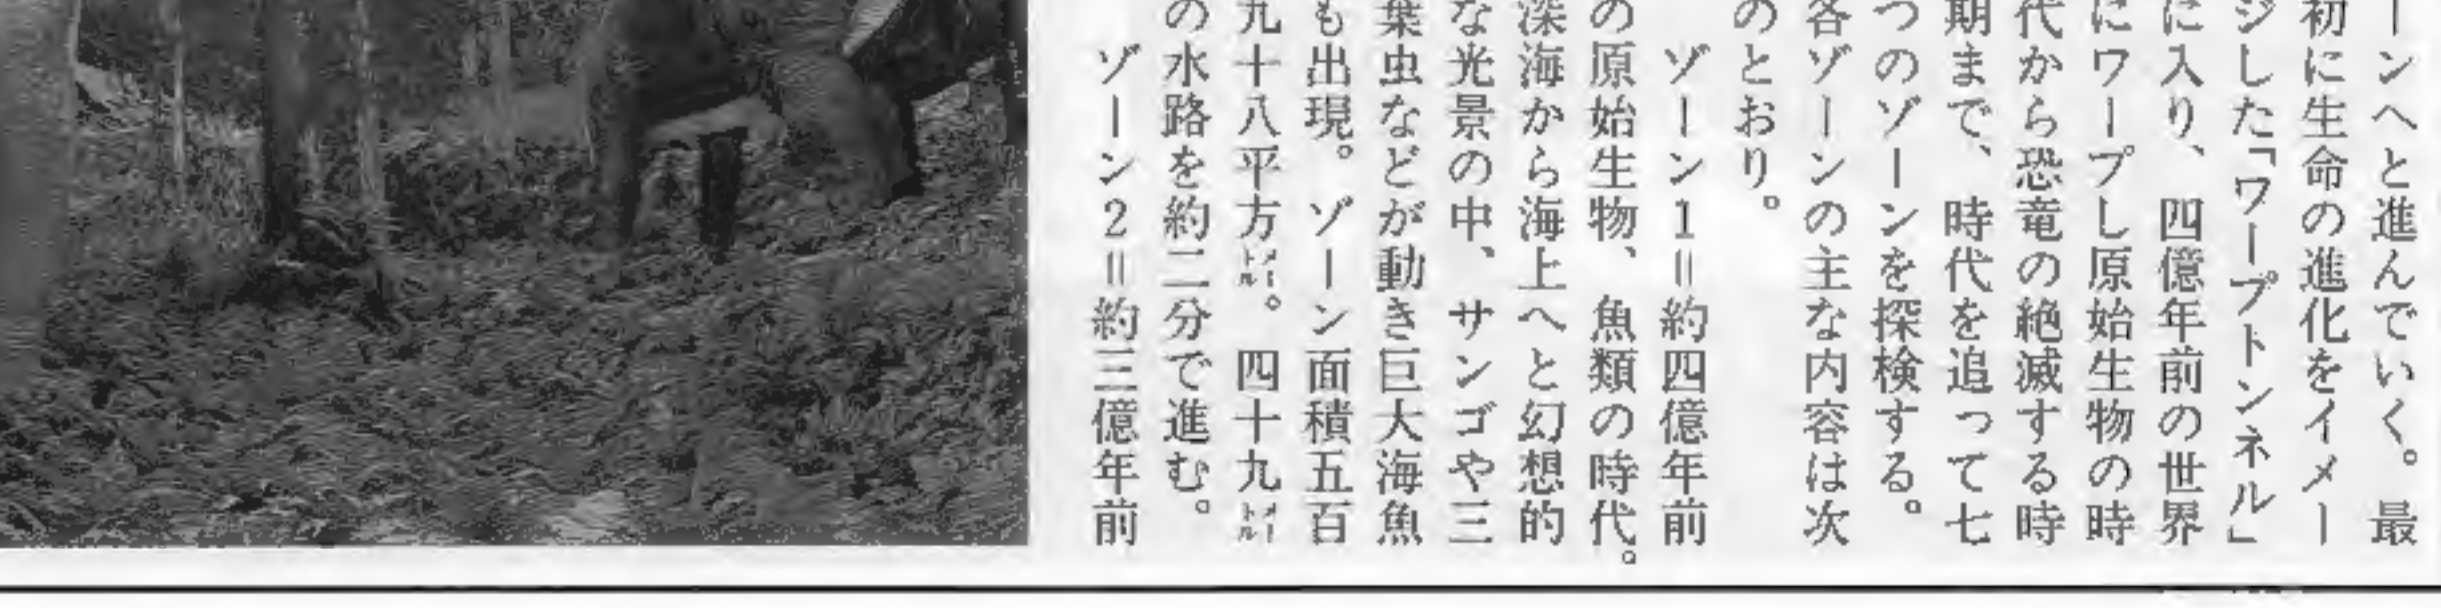 ーンへと進んでいく。最
初に生命の進化をイメー
ジした「ワープトンネル」
に入り、四億年前の世界
にワープし原始生物の時
代から恐竜の絶滅する時
期まで、時代を追って七
つのゾーンを探検する。
各ゾーンの主な内容は次
のとおり。
ゾーン1＝約四億年前
の原始生物、魚類の時代。
深海から海上へと幻想的
な光景の中、サンゴや三
葉虫などが動き巨大海魚
も出現。ゾーン面積五百
九十八平方メートル。四十九メートル
の水路を約二分で進む。
ゾーン2＝約三億年前